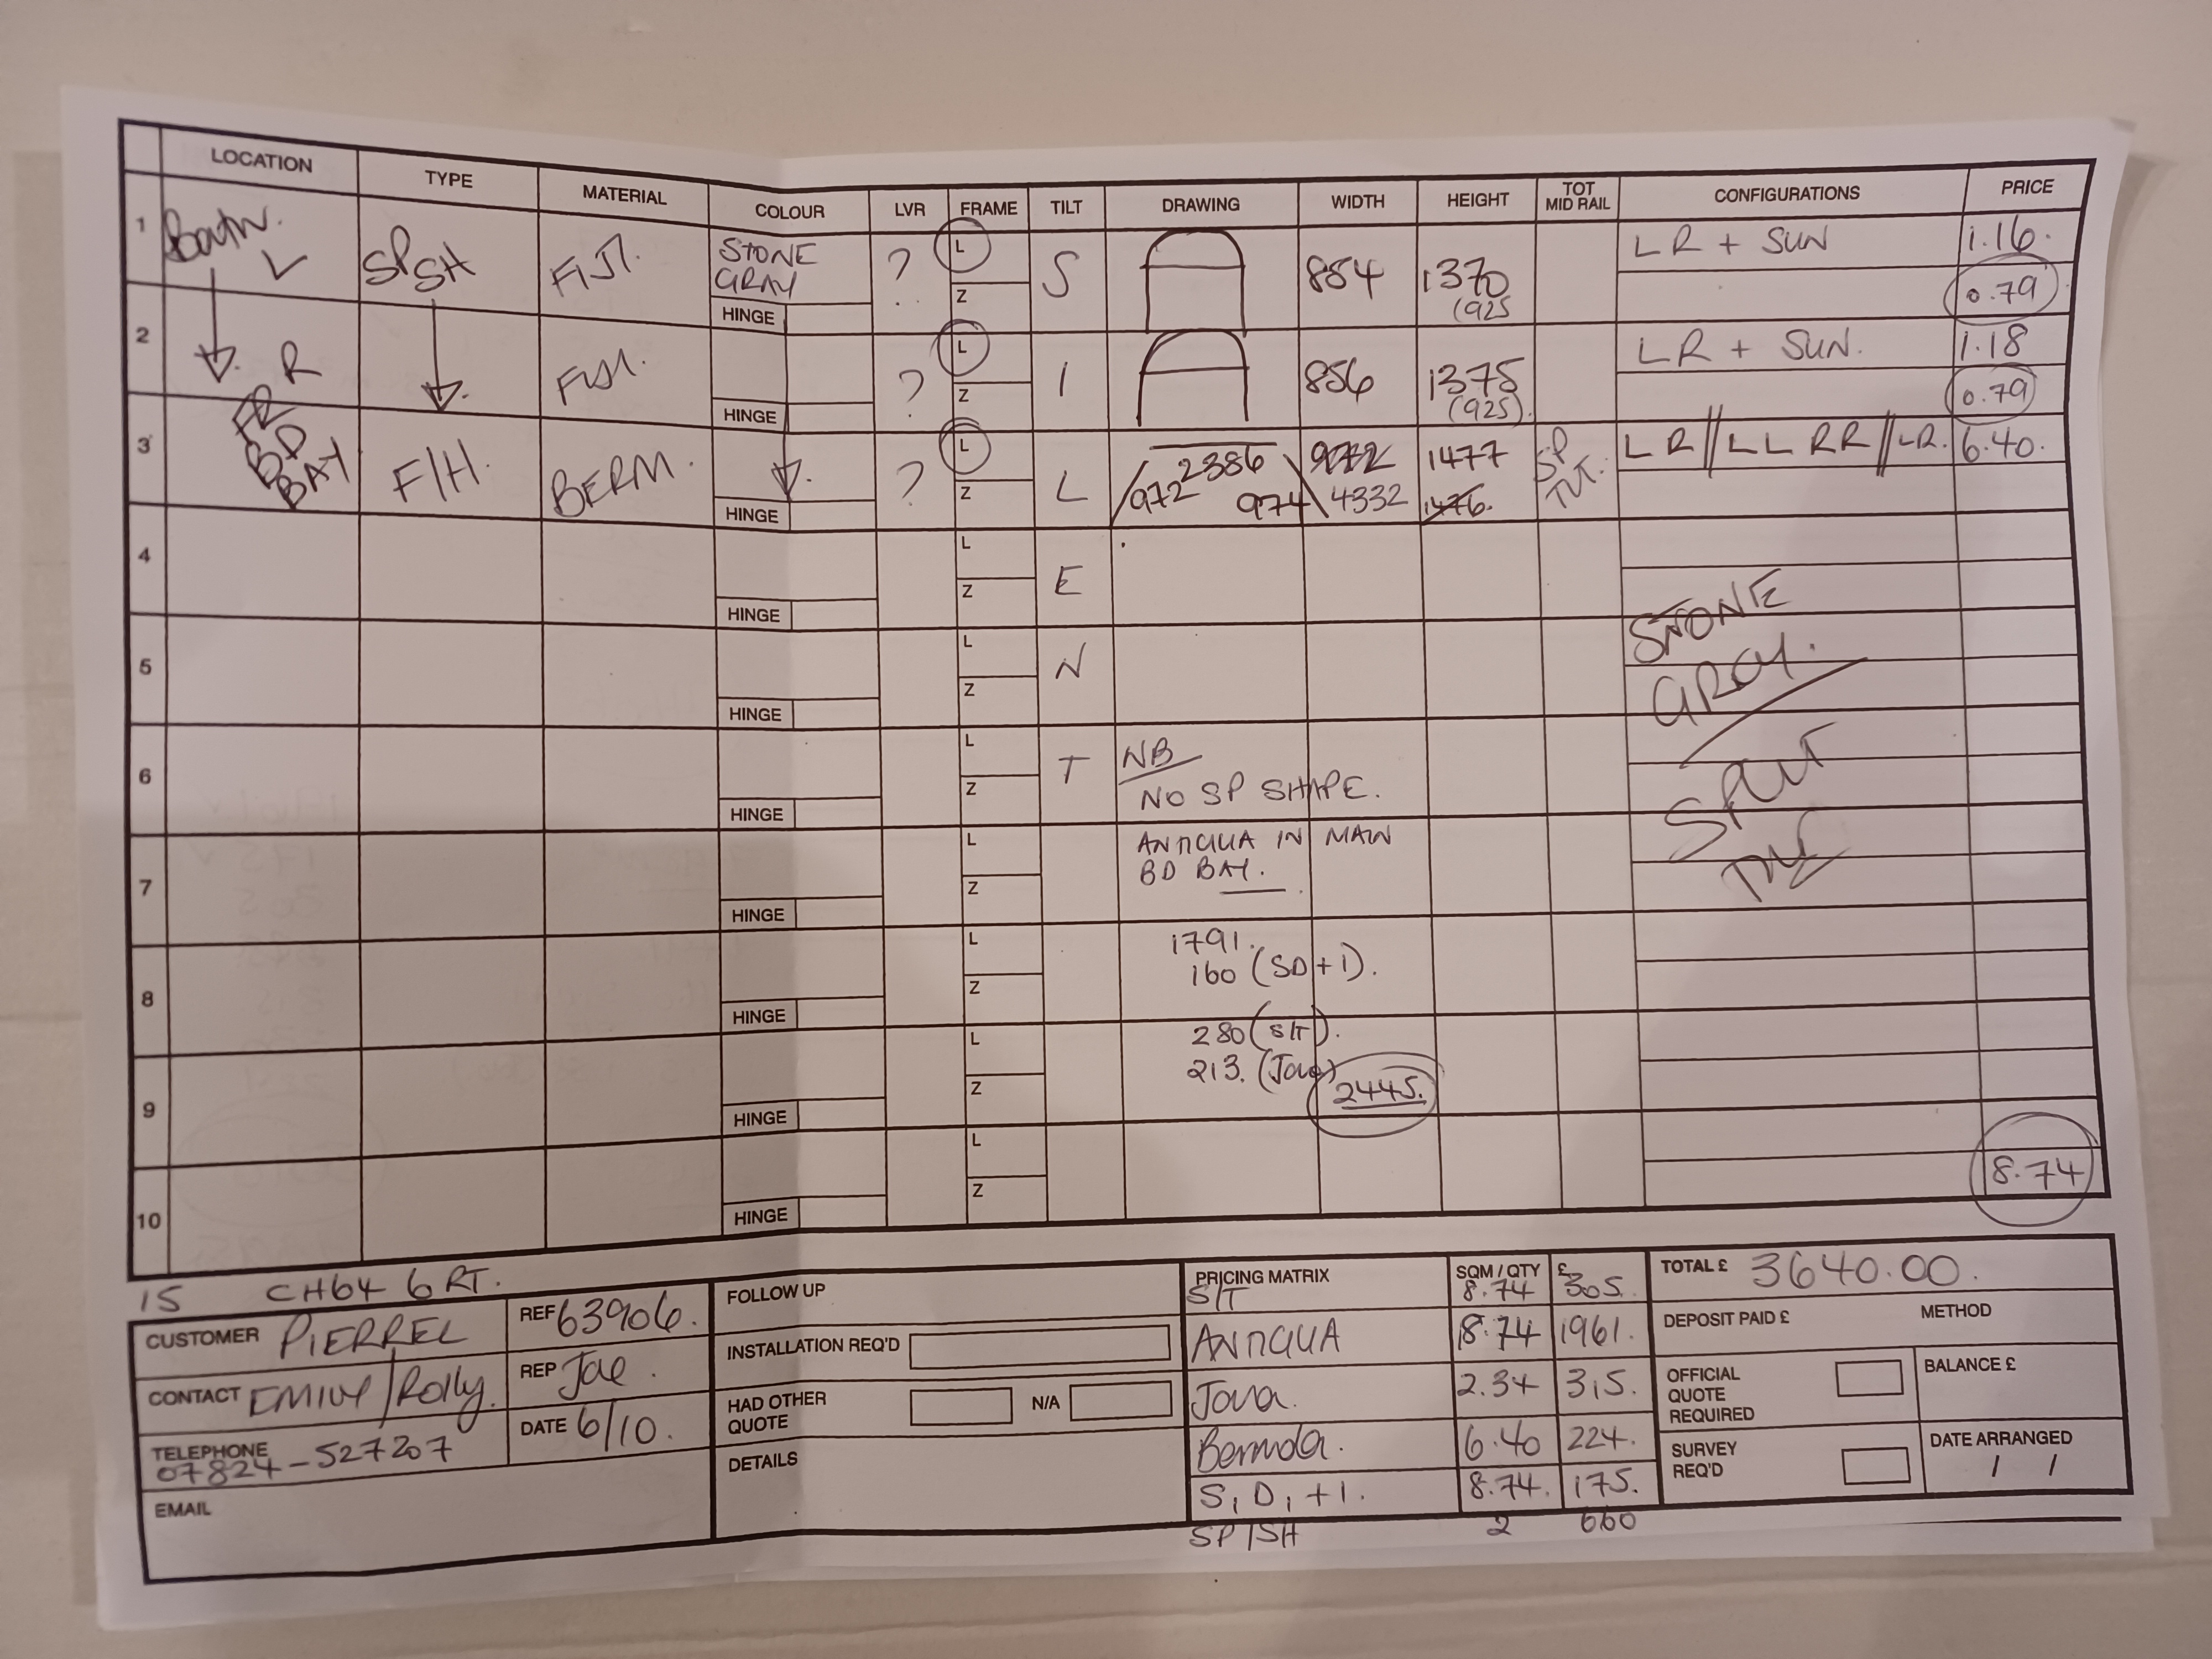 LOCATION TYPE MATERIAL COLOUR LVR FRAME TILT DRAWING WIDTH HEIGHT TOT MID RAIL CONFIGURATIONS PRICE
1 L SP SH FIJI. STONE GRAY HINGE ? L Z S 854 1370 (925 LR + SUN 1.16. 0.79
2 R FIJI. HINGE ? L Z I 856 1375 (925). LR + SUN. 1.18 0.79
3 FR BD BAY F/H. BERM. HINGE ? L Z L 972 2386 974 972 4332 1477 1476. SP TLT. LR//LL RR//LR. 6.40.
4 HINGE L Z E
STONE GRAY.
5 HINGE L Z N
6 HINGE L Z T NB
NO SP SHAPE.
SPLIT TILT
7 HINGE L Z ANTIGUA IN MAIN
BD BAY.
8 HINGE L Z 1791.
160 (SD+1).
9 HINGE L Z 280 (S/T).
213. (Java) 2445.
10 HINGE L Z 8.74
15 CH64 6RT.
CUSTOMER PIERREL REF 63906.
CONTACT EMILY/Rolly. REP Jae.
TELEPHONE 07824-527207 DATE 6/10.
EMAIL
FOLLOW UP
INSTALLATION REQ'D
HAD OTHER QUOTE N/A
DETAILS
PRICING MATRIX SQM / QTY £
S/T 8.74 305.
ANTIGUA 8.74 1961.
Java. 2.34 315.
Bermuda. 6.40 224.
S, D, +1. 8.74. 175.
SP/SH 2 660
TOTAL £ 3640.00.
DEPOSIT PAID £ METHOD
OFFICIAL QUOTE REQUIRED BALANCE £
SURVEY REQ'D DATE ARRANGED
/ /